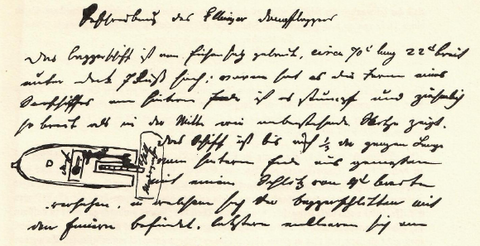 Beschreibung des Elbinger Dampfbaggers
Das Baggerschiff ist von Eichenholz gebaut, circa 70' lang 22' breit
unter Deck 7 Fuß hoch; vorne hat es die Form eines
Seeschiffes am hintern Ende ist es stumpf und ziemlich
so breit als in der Mitte wie nebenstehende Skizze zeigt.
Das Schiff ist bis auf ½ der ganzen Länge
vom hintern Ende aus gemessen
mit einem Schlitz von 4' breite
versehen, in welchem sich der Baggerschlitten mit
den Eimern befindet. letztere